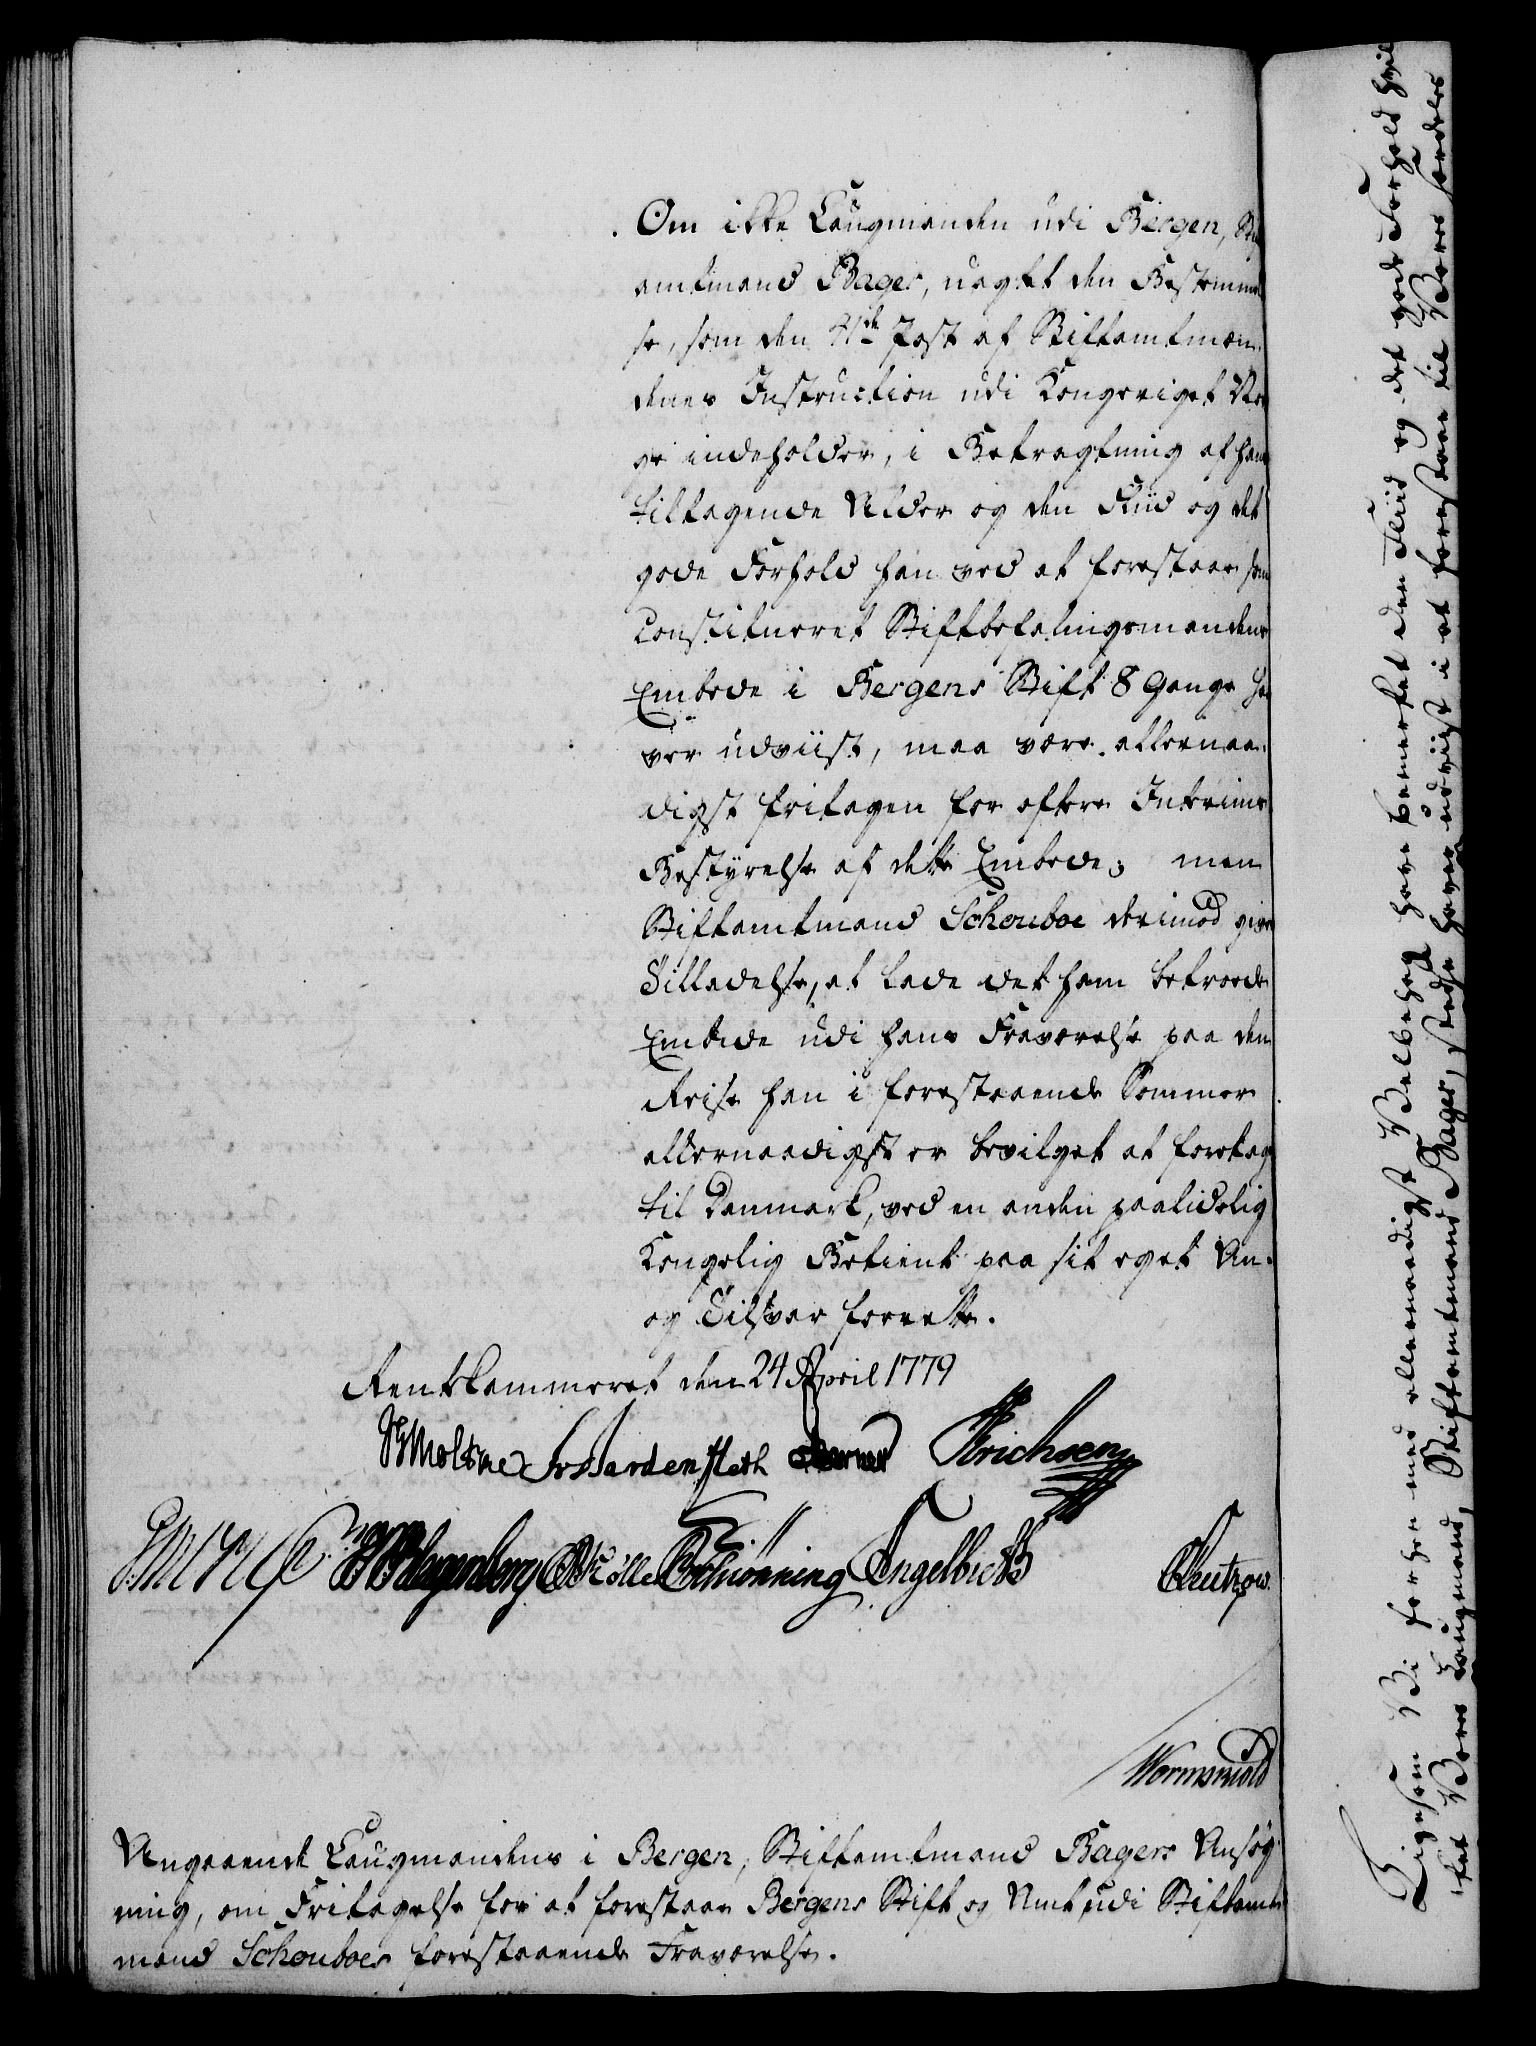 Om ikke Laugmanden udi Bergen, Stift
amtmand Bager, uagtet den Bestemmel
se, som den 41de Post af Stiftamtmæn-
denes Instruction udi Kongeriget Nor
ge indeholder, i Betragtning af hans
tiltagende Alder og den Fliid og det
gode Forhold han ved at forestaae som
Constitueret Stiftbefalingsmandens
Embede i Bergens Stift 8 Gange ha
ver udviist, maa være allernaa-
digst fritagen for oftere Interims
Bestyrelse af dette Embede; men
Stiftamtmand Schouboe derimod give
Tilladelse, at lade det ham betroede
Embede udi hans Fraværelse paa den
Reise han i forestaaende Sommer
allernaadigst er bevilget at foretage
til Danmark, ved en anden paalidelig
Kongelig Betient paa sit eget An-
og Tilsvar forrette.
Rentekammeret den 24 April 1779
JGMoltke FrBardenfleth Berner Erichsen
Schiönning Engelbret
Wormskiold
Angaaende Laugmandens i Bergen, Stiftamtmand Bagers Ansøg-
ning, om Fritagelse for at forestaae Bergens Stift og Amt udi Stiftamt
mand Schouboes forestaaende Fraværelse.
Ligesom Vi herved allernaadigst Velbehag have bemerket den Fliid og det gode Forhold hvil
ket Vores Laugmand, Stiftamtmand Bager, stedse haver udviist i at forestaae til Vores særdeles